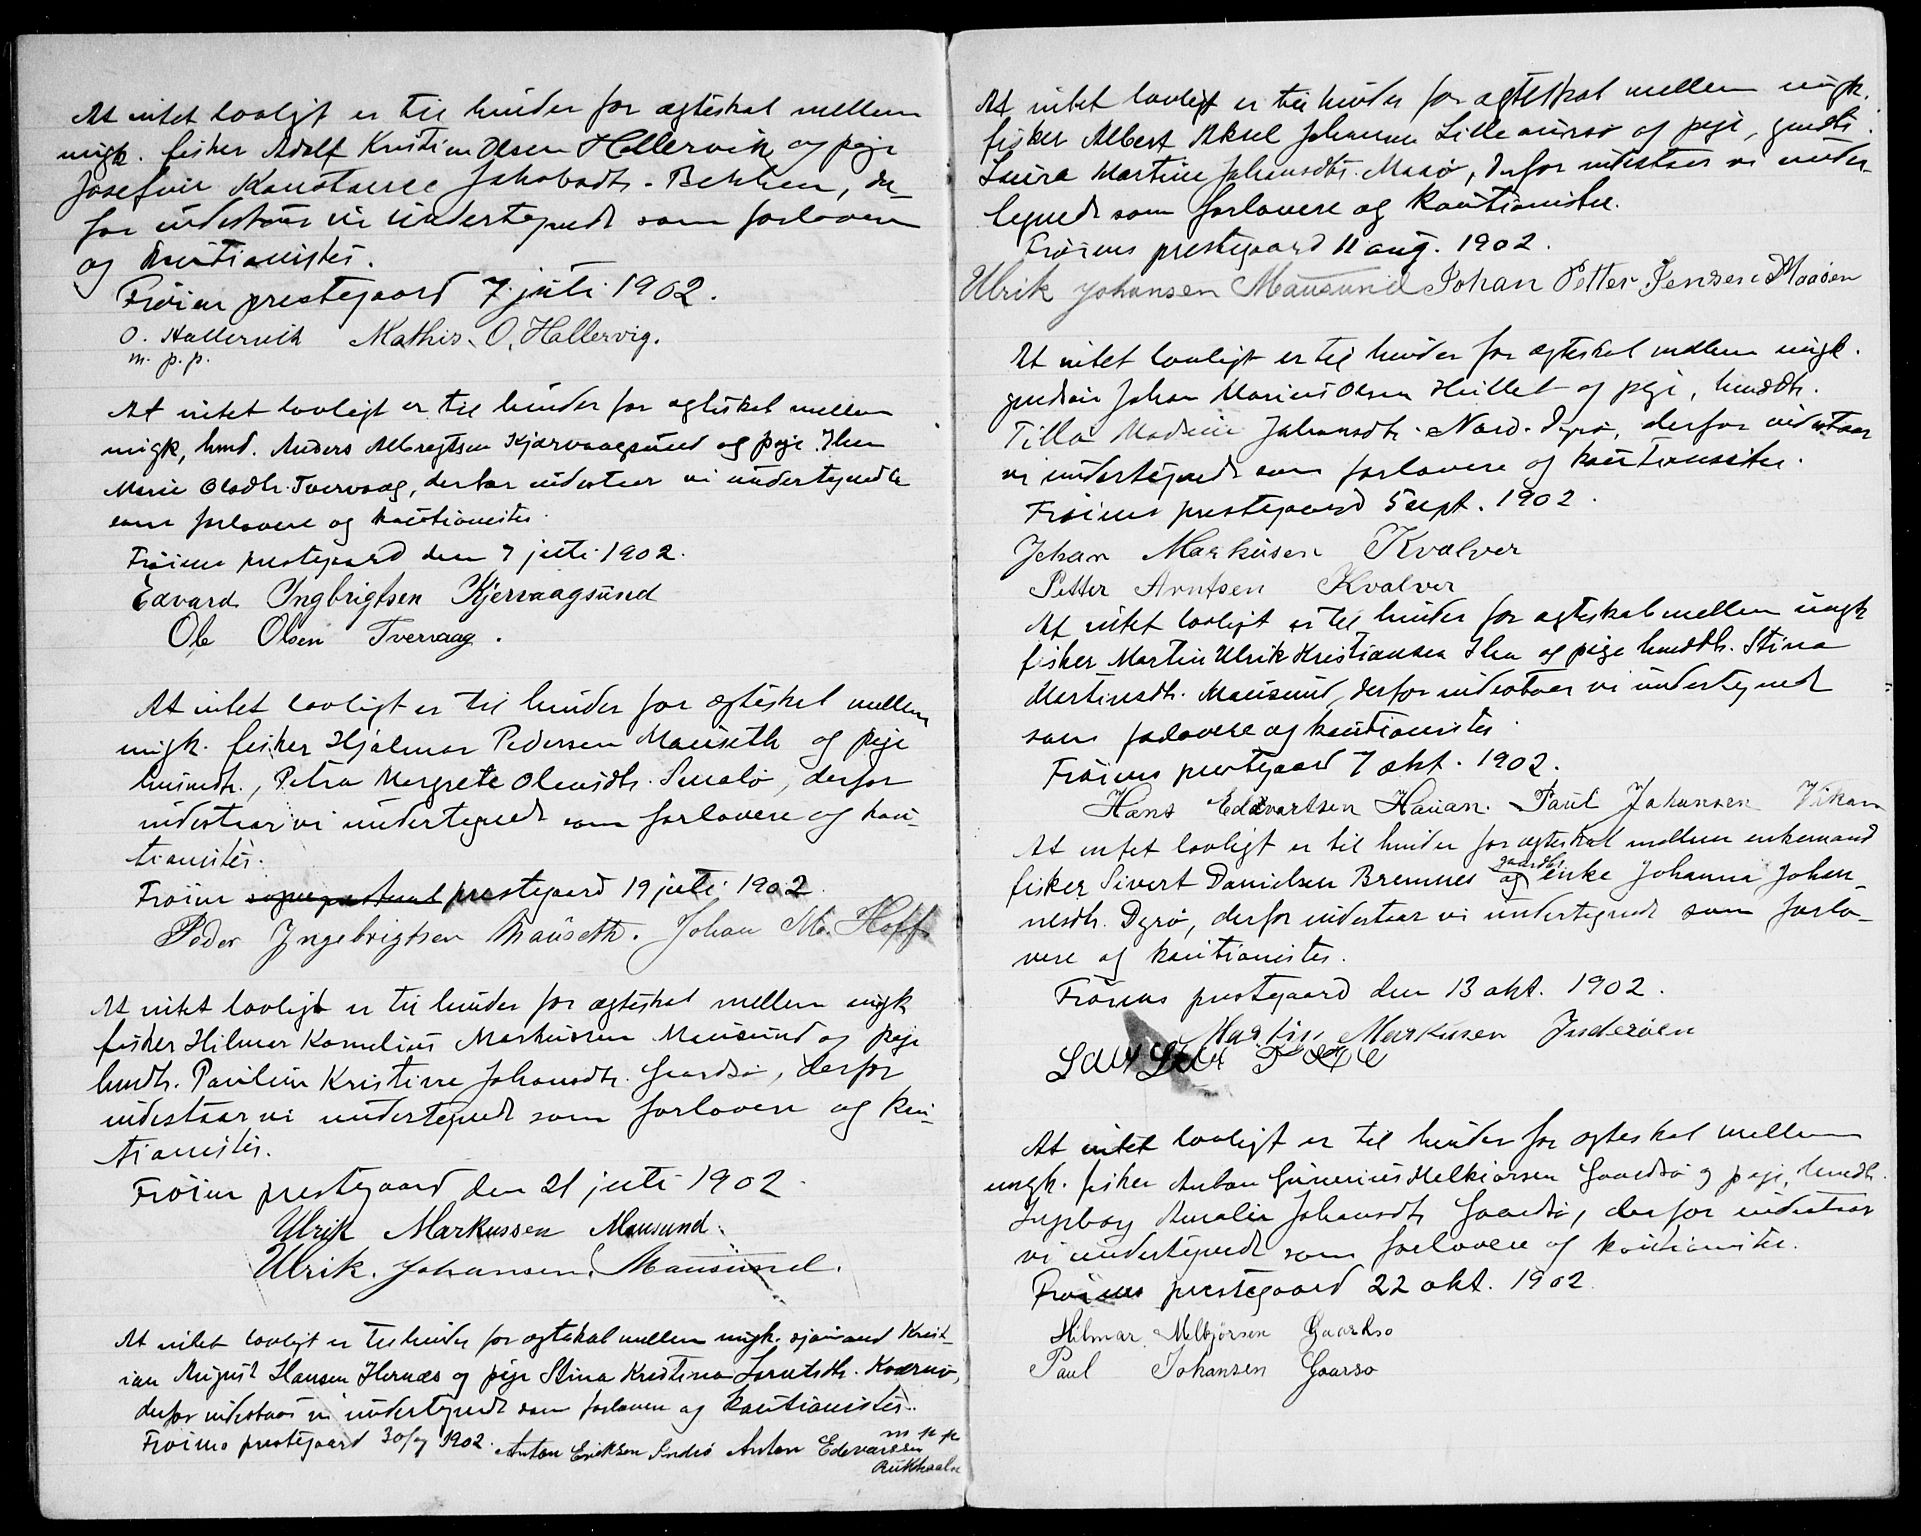 At intet lovligt er til hinder for ægteskab mellem
ungk. fisker Adolf Kristian Olsen Hallervik og pige
Josefine Konstanse Jakobsdtr. Bekken, der-
for indestaar vi undertegnede som forlovere
og kautionister.
Frøien prestegaard 7 juli 1902.
O. Hallervik Mathis. O. Hallervig.
m. p. p.
At intet lovligt er til hinder for ægteskab mellem
ungk, husmd. Anders Albregtsen Kjærvaagsund og pige
Marie Olsdtr. Tvervaag, derfor indestaar vi undertegnede
som forlovere og kautionister.
Frøiens prestegaard den 7 juli 1902.
Edvard Ingbrigtsen Kjervaagsund
Ole Olsen Tvervaag.
At intet lovligt er til hinder for ægteskab mellem
ungk. fisker Hjalmar Pedersen Mauseth og pige
husmdtr., Petra Margrete Olausdtr. Smalø, derfor
indestaar vi undertegnede som forlovere og kau-
tionister.
Frøien prestegaard 19 juli 1902.
Peder Ingebrigtsen Mauseth. Johan M. Hoff
At intet lovligt er til hinder for ægteskab mellem ungk
fisker Hilmar Kornelius Markussen Mausund og pige
husmdtr. Pauline Kristine Johansdtr. Gaardsø, derfor
indestaar vi undertegnede som forlovere og kau-
tionister.
Frøien prestegaard den 21 juli 1902.
Ulrik Markussen Mausund.
Ulrik. Johansen. Mausund.
At intet lovligt er til hinder for ægteskab mellem ungk. sjømand Krist-
ian August Hansen Hernæs og pige Stina Kristina Kværnø,
derfor indestaar vi undertegnede som forlovere og kautionister.
Frøiens prestegaard 30/7 1902. Anton Eriksen Indrø Anton Edevarssen
m p p
At intet lovligt er til hinder for ægteskab mellem ungk.
fisker Albert Aksel Johansen Lilleaursø og pige, gmdtr.
Laura Martine Johansdtr. Masø, derfor indestaar vi under-
tegnede som forlovere og kautionister.
Frøiens prestegaard 11 aug. 1902.
Ulrik Johansen Mausund Johan Petter Jensen Maasøn
At intet lovligt er til hinder for ægteskab mellem ungk.
Johan Marius Olsen og pige, husmdtr.
Johansdtr. Nord-Dyrø, derfor indestaar
vi undertegnede som forlovere og kautionister.
Frøiens prestegaard 5 sept. 1902.
Johan Markusen Kvalver
Petter Arntsen Kvalver
At intet lovligt er til hinder for ægteskab mellem ungk
fisker Martin Ulrik Kristiansen og pige husmdtr. Stina
Martinsdtr. Mausund, derfor indestaar vi undertegnede
som forlovere og kautionister.
Frøiens prestegaard 7 okt. 1902.
Hans Edevartsen Hauan. Paul Johansen Vikan
At intet lovligt er til hinder for ægteskab mellem enkemand
fisker Sivert Danielsen Bremnes og gaardbr. enke Johanna Johan-
nesdtr. Dyrø, derfor indestaar vi undertegnede som forlo-
vere og kautionister.
Frøiens prestegaard den 13 okt. 1902.
Martin Markusen Inderøen
At intet lovligt er til hinder for ægteskab mellem
ungk. fisker Anton Gunerius Melkiorsen Gaardsø og pige, husmdtr.
Ingeborg Amalie Johansdtr Gaardsø, derfor indestaar
vi undertegnede som forlovere og kautionister.
Frøiens prestegaard 22 okt. 1902.
Hilmar Melkjorsen Gaardso
Paul Johansen Gaarso